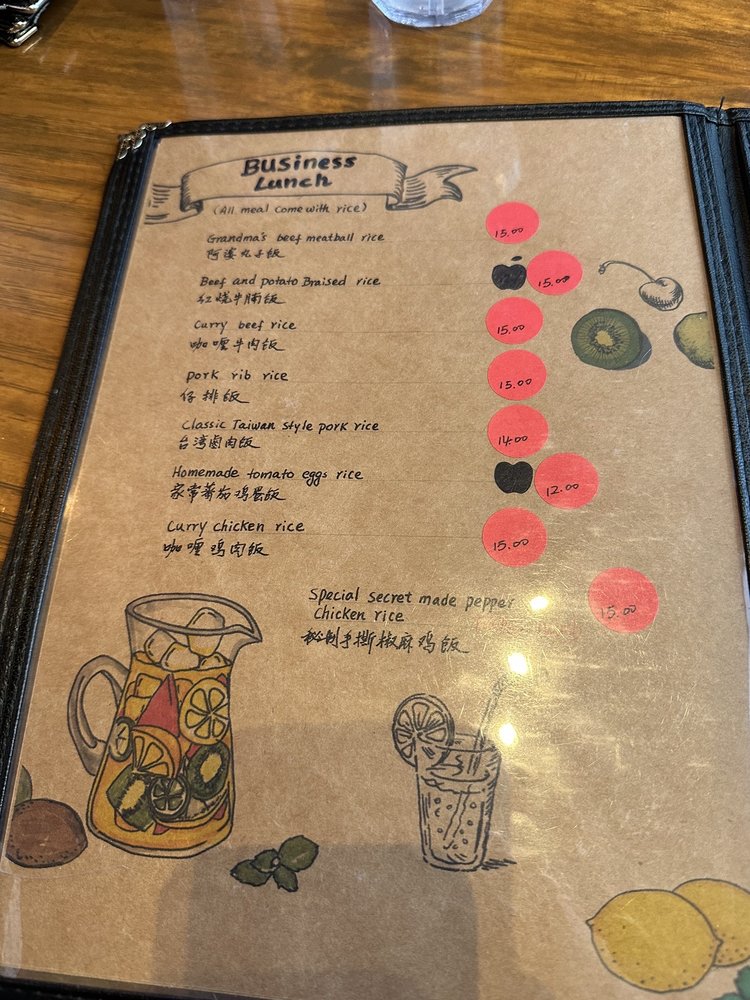 Business
Lunch
(All meal come with rice)
Grandma's beef meatball rice 15.00
阿婆丸子饭
Beef and potato Braised rice 15.00
红烧牛腩饭
Curry beef rice 15.00
咖喱牛肉饭
pork rib rice 15.00
仔排饭
Classic Taiwan style pork rice 14.00
台湾卤肉饭
Homemade tomato eggs rice 12.00
家常蕃茄鸡蛋饭
Curry chicken rice 15.00
咖喱鸡肉饭
Special secret made pepper
Chicken rice 15.00
秘制手撕椒麻鸡饭